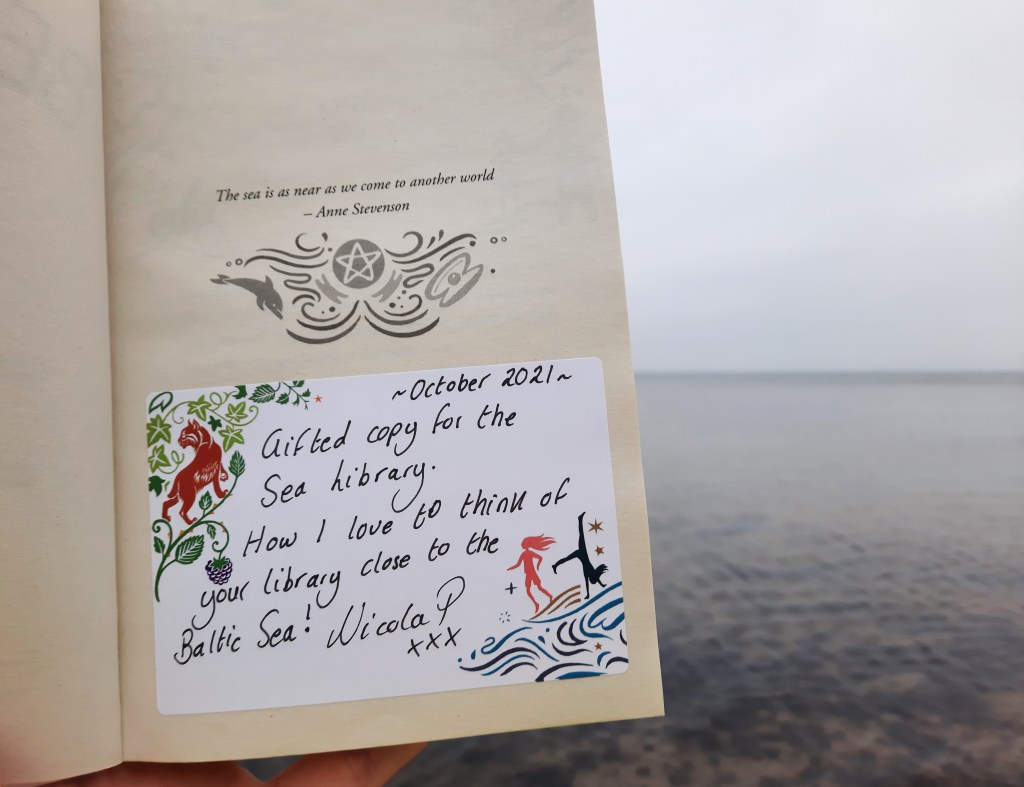 The sea is as near as we come to another world
– Anne Stevenson
~October 2021~
Gifted copy for the
Sea Library.
How I love to think of
your library close to the
Baltic Sea! Nicola P
xxx